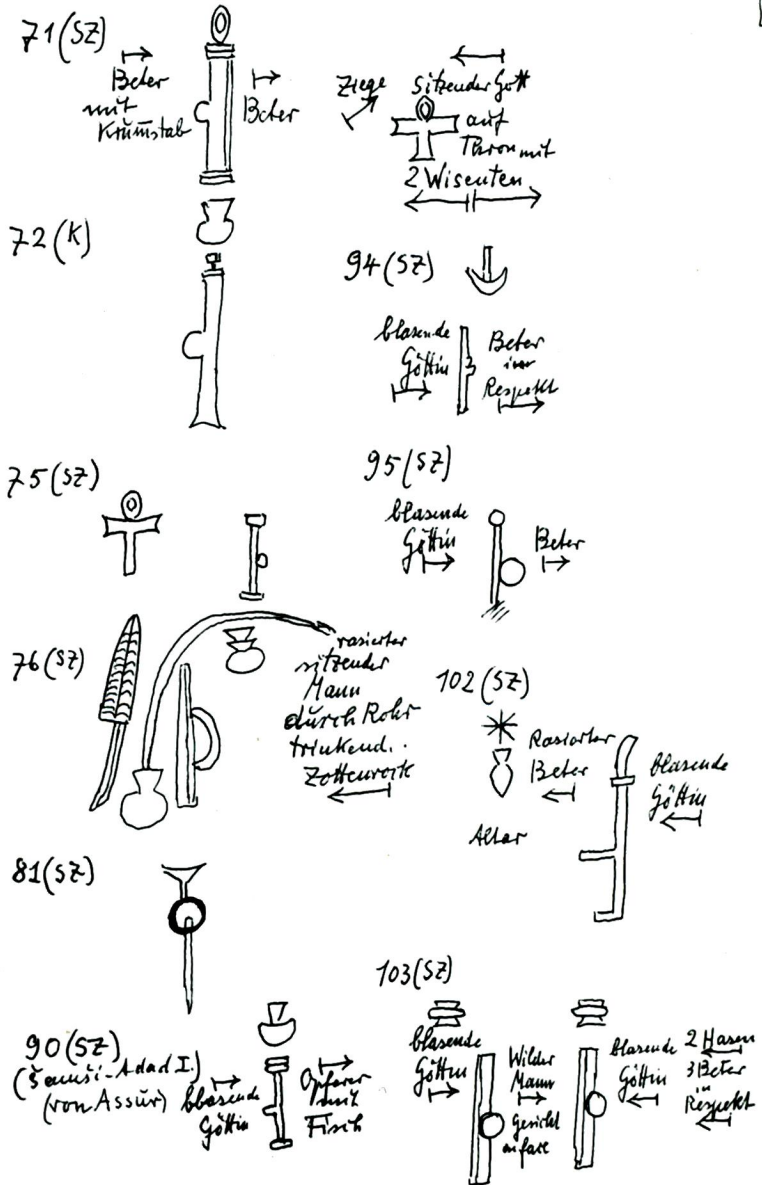 71 (SZ)
Beter
mit
Krummstab
Beter
Ziege
sitzender Gott
auf
Thron mit
2 Wisenten
72 (K)
94 (SZ)
blasende
Göttin
Beter
in
Respekt
75 (SZ)
95 (SZ)
blasende
Göttin
Beter
76 (SZ)
rasierter
sitzender
Mann
durch Rohr
trinkend..
Zottenrock
102 (SZ)
Rasierter
Beter
blasende
Göttin
Altar
81 (SZ)
103 (SZ)
90 (SZ)
(Šamši-Adad I.)
(von Assur)
blasende
Göttin
Opferer
mit
Fisch
blasende
Göttin
Wilder
Mann
Gesicht
en face
blasende
Göttin
2 Hasen
3 Beter
in
Respekt